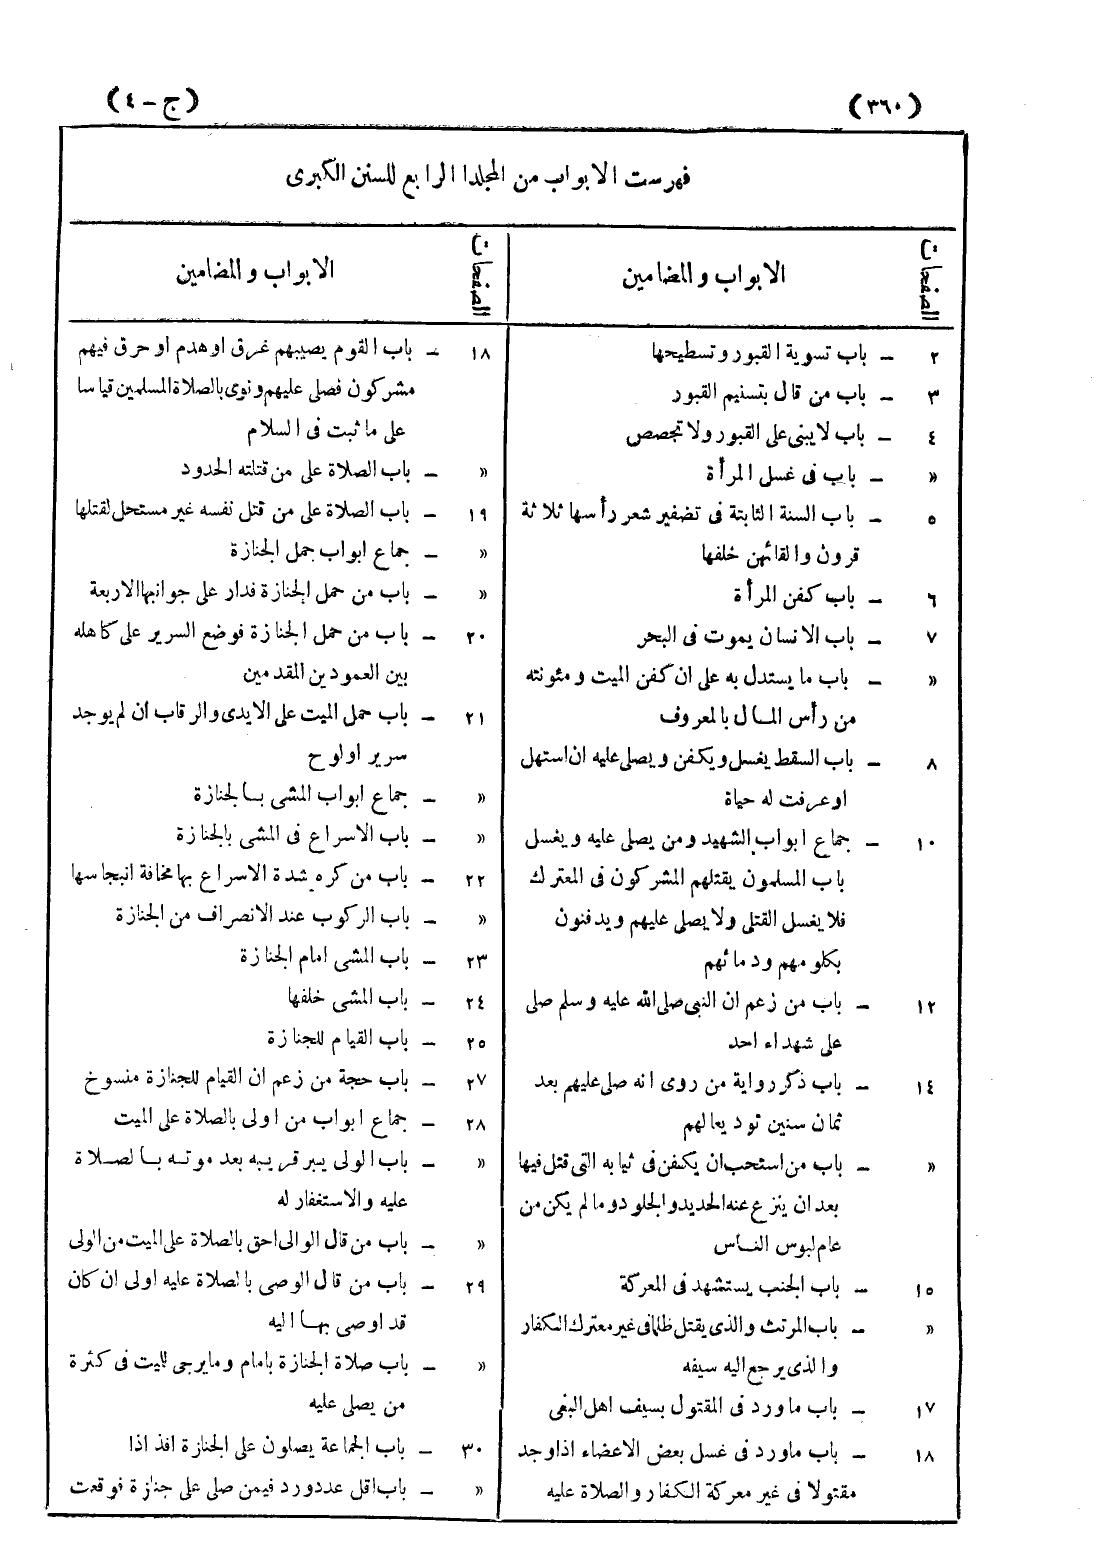 (٣٦٠)
(ج - ٤)
فهرست الابواب من المجلدا الرابع للسنن الكبرى
الصفحات
الابواب والمضامين
٢ - باب تسوية القبور وتسطيحها
٣ - باب من قال بتسنيم القبور
٤ - باب لايبنى على القبور ولا تجصص
« - باب فى غسل المرأة
٥ - باب السنة الثابتة فى تضفير شعر رأسها ثلاثة
قرون والقائهن خلفها
٦ - باب كفن المرأة
٧ - باب الانسان يموت فى البحر
« - باب ما يستدل به على ان كفن الميت ومئونته
من رأس المال بالمعروف
٨ - باب السقط يغسل ويكفن ويصلى عليه ان استهل
اوعرفت له حياة
١٠ - جماع ابواب الشهيد ومن يصلى عليه ويغسل
باب المسلمون يقتلهم المشركون فى المعترك
فلا يغسل القتلى ولا يصلى عليهم ويدفنون
بكلومهم ودمائهم
١٢ - باب من زعم ان النبى صلى الله عليه وسلم صلى
على شهداء احد
١٤ - باب ذكر رواية من روى انه صلى عليهم بعد
ثمان سنين توديعا لهم
« - باب من استحب ان يكفن فى ثيابه التى قتل فيها
بعد ان ينزع عنه الحديد والجلود وما لم يكن من
عام لبوس الناس
١٥ - باب الجنب يستشهد فى المعركة
« - باب المرتث والذى يقتل ظلما فى غير معترك الكفار
والذى يرجع اليه سيفه
١٧ - باب ماورد فى المقتول بسيف اهل البغى
١٨ - باب ماورد فى غسل بعض الاعضاء اذاوجد
مقتولا فى غير معركة الكفار والصلاة عليه
الصفحات
الابواب والمضامين
١٨ - باب القوم يصيبهم غرق اوهدم اوحرق فيهم
مشركون فصلى عليهم ونوى بالصلاة المسلمين قياسا
على ما ثبت فى السلام
« - باب الصلاة على من قتلته الحدود
١٩ - باب الصلاة على من قتل نفسه غير مستحل لقتلها
« - جماع ابواب حمل الجنازة
« - باب من حمل الجنازة فدار على جوانبها الاربعة
٢٠ - باب من حمل الجنازة فوضع السرير على كاهله
بين العمودين المقدمين
٢١ - باب حمل الميت على الايدى والرقاب ان لم يوجد
سرير اولوح
« - جماع ابواب المشى بالجنازة
« - باب الاسراع فى المشى بالجنازة
٢٢ - باب من كره شدة الاسراع بها مخافة انبجاسها
« - باب الركوب عند الانصراف من الجنازة
٢٣ - باب المشى امام الجنازة
٢٤ - باب المشى خلفها
٢٥ - باب القيام للجنازة
٢٧ - باب حجة من زعم ان القيام للجنازة منسوخ
٢٨ - جماع ابواب من اولى بالصلاة على الميت
« - باب الولى يبر قريبه بعد موته بالصلاة
عليه والاستغفار له
« - باب من قال الوالى احق بالصلاة على الميت من الولى
٢٩ - باب من قال الوصى بالصلاة عليه اولى ان كان
قد اوصى بها اليه
« - باب صلاة الجنازة بامام ومايرجى للميت فى كثرة
من يصلى عليه
٣٠ - باب الجماعة يصلون على الجنازة افذاذا
« - باب اقل عدد ورد فيمن صلى على جنازة فوقعت